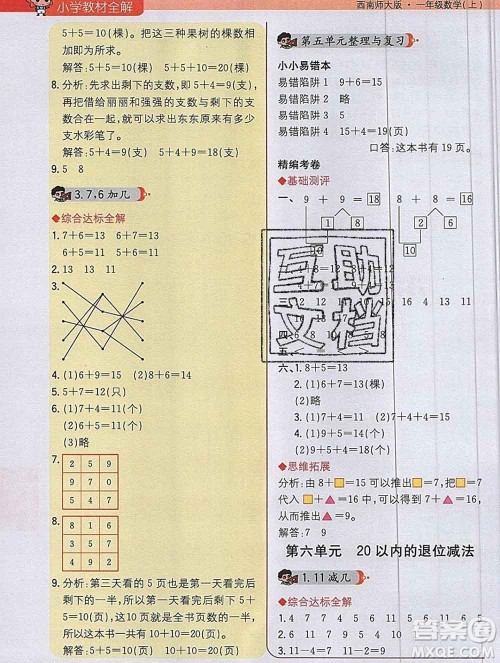 小学教材全解
西南师大版·一年级数学(上)
5+5=10(棵)。把这三种果树的棵数
相加即可。
解答:5+5=10(棵) 5+5+10=20(棵)
8. 分析:先求出剩下的支数,即5+4=9(支),
再把借给丽丽和强强的支数与剩下的支
数合在一起,就可以求出东东原来有多少
支水彩笔了。
解答:5+4=9(支) 5+4+9=18(支)
9. 5 8
3. 7、6加几
◆综合达标全解
1. 7+6=13 6+7=13
6+5=11 5+6=11
2. 13 13 11
3.
4. (1)6+9=15 (2)8+6=14
5. 5+7=12(只)
6. (1)7+4=11(个)
(2)6+5=11(个)
(3)略
7.
2 5 9
9 7 0
5 4 7
8.
8 1 6
3 5 7
4 9 2
9. 分析:第三天看的5页也是第一天看
完剩下的一半,所以第一天看完剩下
5+5=10(页),这10页是全书页数的一半,
所以这本书共有10+10=20(页)。
解答:5+5=10(页) 10+10=20(页)
第五单元整理与复习
小小易错本
易错陷阱1 9+6=15
易错陷阱2 略
易错陷阱3 略
易错陷阱4 15+4=19(页)
口答:这本书有19页。
精编考卷
◆基础测评
一、9+9=18 8+8=16
1 8
10
10
互助
文档
4+8=12
12 18 16 13 15 14
六、1. 8+5=13
2. (1)6+7=13(棵)
(2)略
3. (1)7+4=11(个)
(2)略
◆思维拓展
分析:由8+□=15可以推出□=7,把□=7
代入□+□+▲=16中,可以得到7+7+▲
=16,从而可以推出▲=2。
解答:7 9
第六单元 20以内的退位减法
1. 11减几
◆综合达标全解
1. 4 7 7 11 11 6 6 5
2. 11-4=7 11-5=6
答案圈
MXQE.COM